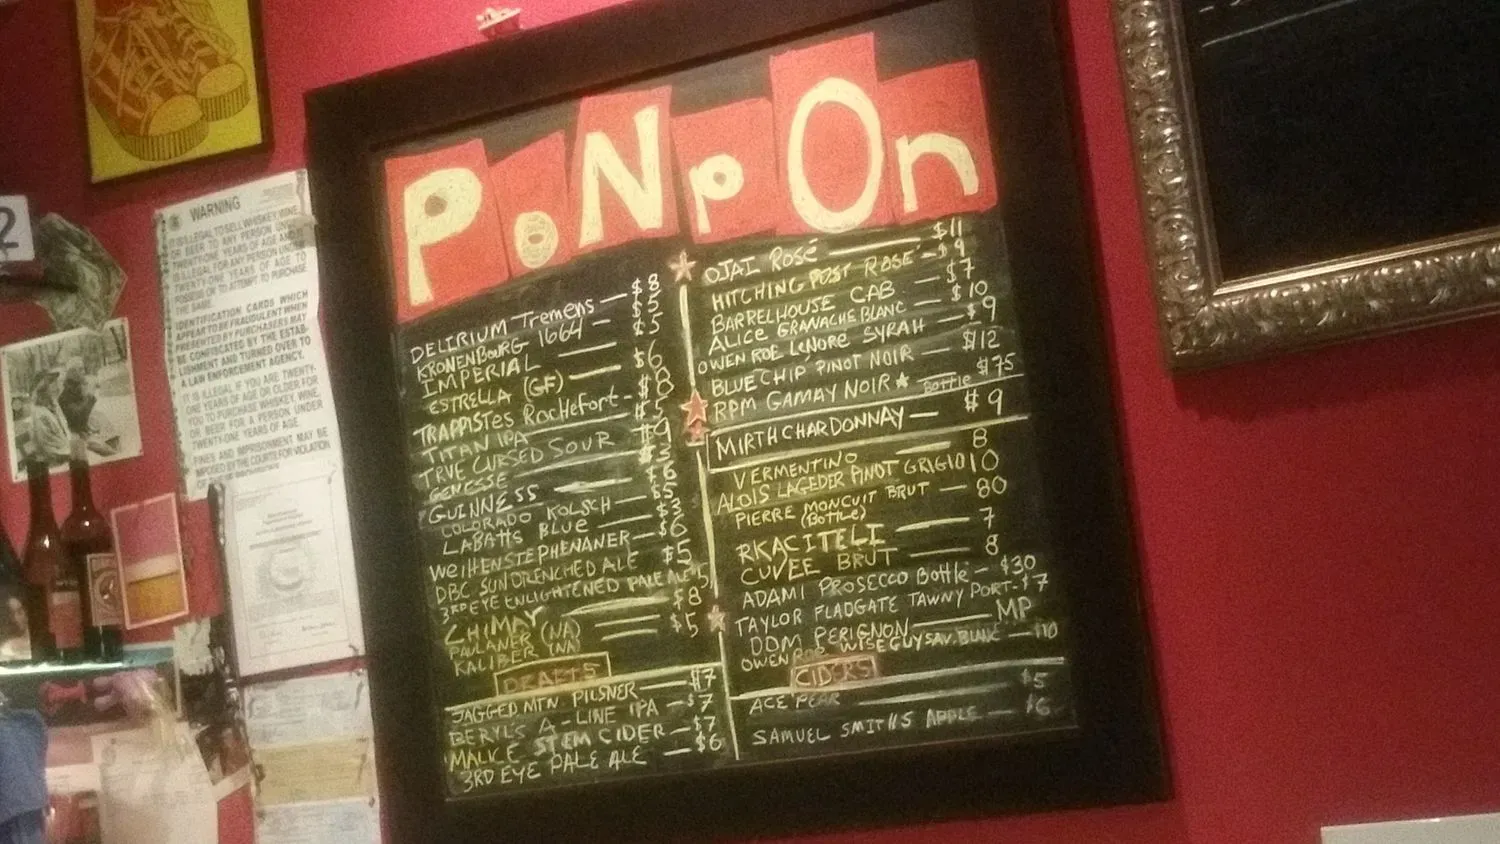 2
WARNING
IT IS ILLEGAL TO SELL WHISKEY, WINE
OR BEER TO ANY PERSON UNDER
TWENTY-ONE YEARS OF AGE AND
IT IS ILLEGAL FOR ANY PERSON UNDER
TWENTY-ONE YEARS OF AGE TO
POSSESS OR TO ATTEMPT TO PURCHASE
THE SAME.
IDENTIFICATION CARDS WHICH
APPEAR TO BE FRAUDULENT WHEN
PRESENTED BY PURCHASERS MAY
BE CONFISCATED BY THE ESTAB-
LISHMENT AND TURNED OVER TO
A LAW ENFORCEMENT AGENCY.
IT IS ILLEGAL IF YOU ARE TWENTY-
ONE YEARS OF AGE OR OLDER FOR
YOU TO PURCHASE WHISKEY, WINE,
OR BEER FOR A PERSON UNDER
TWENTY-ONE YEARS OF AGE.
FINES AND IMPRISONMENT MAY BE
IMPOSED BY THE COURTS FOR VIOLATION
PoNpOn
DELIRIUM Tremens — $8
KRONENBOURG 1664 — $5
IMPERIAL — $5
ESTRELLA (GF) — $6
TRAPPISTES Rochefort -
TITAN IPA
TRVE CURSED SOUR
GENESSE
GUINNESS
COLORADO KOLSCH
LABATTS BLUE
WEIHENSTEPHENANER — $6
DBC SUN DRENCHED ALE $5
3RD EYE ENLIGHTENED PALE ALE $5
CHIMAY $8
PAULANER (NA) $5
KALIBER (NA)
DRAFTS
JAGGED MTN. PILSNER — $7
BERYL'S A-LINE IPA — $7
MALICE STEM CIDER — $7
3RD EYE PALE ALE — $6
OJAI Rosé — $11
HITCHING POST ROSÉ - $9
BARRELHOUSE CAB — $7
ALICE GRANACHE BLANC — $10
OWEN ROE LENORE SYRAH — $9
BLUE CHIP PINOT NOIR — $12
RPM GAMAY NOIR ★ BOTTLE $75
MIRTH CHARDONNAY — $9
VERMENTINO — 8
ALOIS LAGEDER PINOT GRIGIO 10
PIERRE MONCUIT BRUT — 80
(BOTTLE)
RKACITELI — 7
CUVEE BRUT — 8
ADAMI PROSECCO Bottle - $30
TAYLOR FLADGATE TAWNY PORT - $7
DOM PERIGNON — MP
OWEN ROE WISEGUY SAV. BLANC — $10
CIDERS
ACE PEAR — $5
SAMUEL SMITHS APPLE — $6